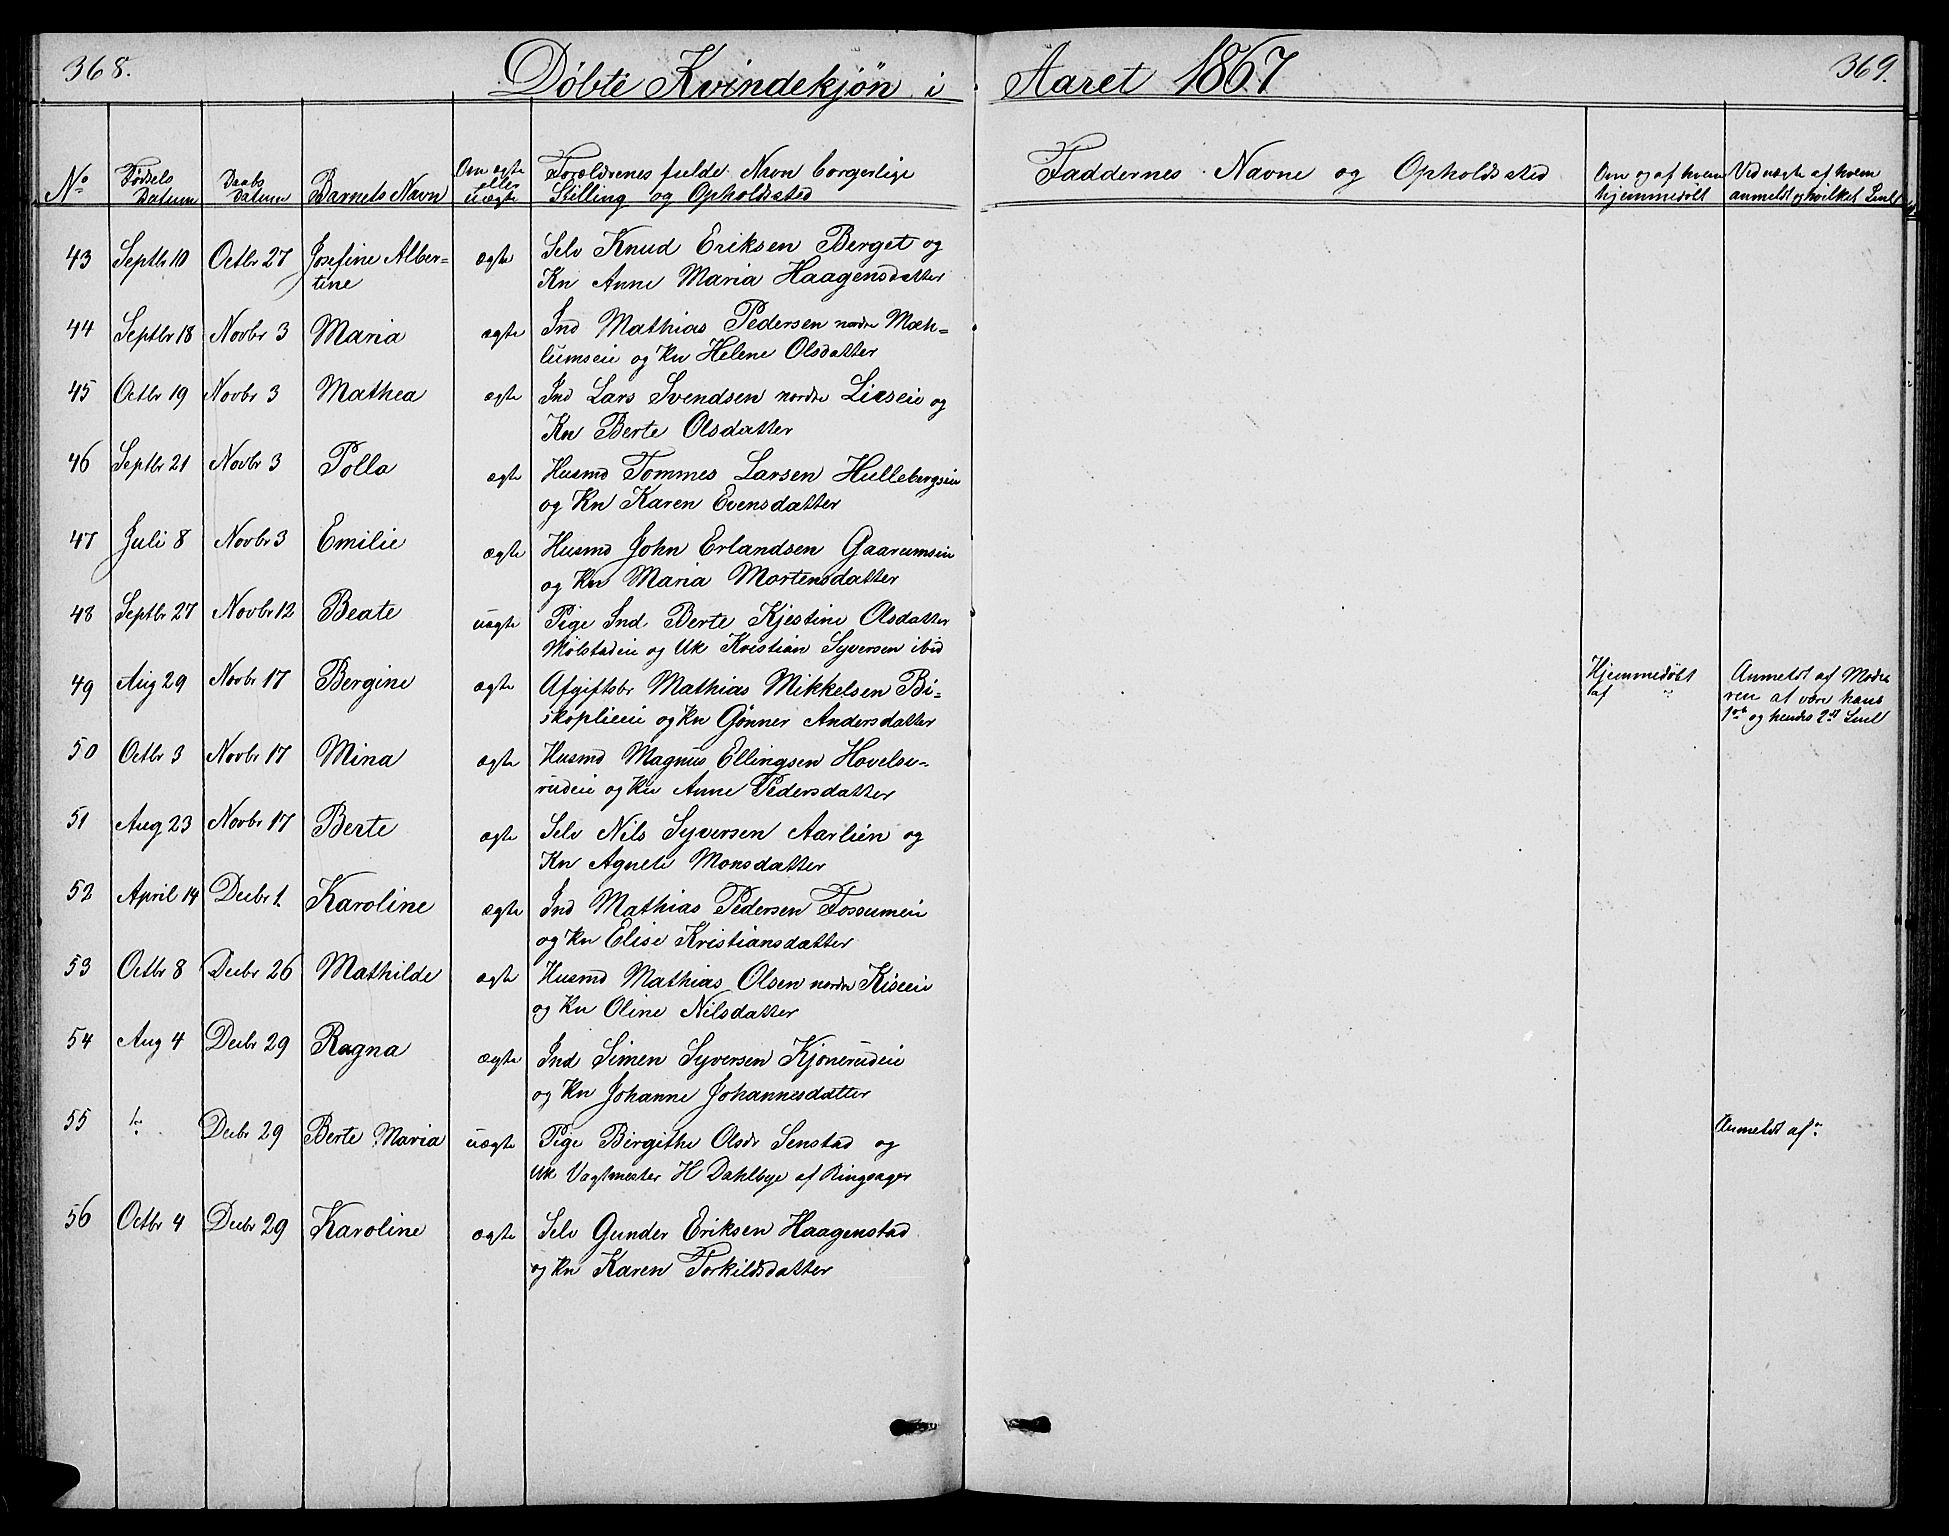 368.
Døbte Kvindekjøn i Aaret 1867
369.
No
Fødsels Datum
Daabs Datum
Barnets Navn
Om ægte eller uægte
Forældrenes fulde Navn borgerlige
Stilling og Opholdssted
Faddernes Navne og Opholdssted
Om og af hvem
hjemmedøbt
Ved uægte af hvem
anmeldt og hvilket Leiel
43 Septbr 10 Octbr 27 Josefine Alber- ægte Selv Knud Eriksen Berget og
tine Kn Anne Maria Haagensdatter
44 Septbr 18 Novbr 3 Maria ægte Ind Mathias Pedersen nordre Mæh-
lumseie og Kn Helene Olsdatter
45 Octbr 19 Novbr 3 Mathea ægte Ind Lars Svendsen nordre Lieseie og
Kn Berte Olsdatter
46 Septbr 21 Novbr 3 Polla ægte Husmd Tommes Larsen Hullebergseie
og Kn Karen Evensdatter
47 Juli 8 Novbr 3 Emilie ægte Husmd John Erlandsen Gaarumseie
og Kn Maria Mortensdatter
48 Septbr 27 Novbr 12 Beate uægte Pige Ind Berte Kjestine Olsdatter
Mølstadeie og Uk Kristian Syversen ibid
49 Aug 29 Novbr 17 Bergine ægte Afgiftsbr Mathias Mikkelsen Bi- Hjemmedøbt Anmeldt af Mode
skoplieeie og Kn Gønner Andersdatter af " ren at være hans
1ste og hendes 2det Leiel
50 Octbr 3 Novbr 17 Mina ægte Husmd Magnus Ellingsen Hovels-
rudeie og Kn Anne Pedersdatter
51 Aug 23 Novbr 17 Berte ægte Selv Nils Syversen Aarlien og
Kn Agnete Monsdatter
52 April 14 Decbr 1. Karoline ægte Ind Mathias Pedersen Fossumeie
og Kn Elise Kristiansdatter
53 Octbr 8 Decbr 26 Mathilde ægte Husmd Mathias Olsen nordre Kiseeie
og Kn Oline Nilsdatter
54 Aug 4 Decbr 29 Ragna ægte Ind Simen Syversen Kjonerudeie
og Kn Johanne Johannesdatter
55 Decbr 29 Berte Maria uægte Pige Birgithe Olsdr Senstad og Anmeldt af "
Uk Vagtmester H Dahlbye af Ringsager
56 Octbr 4 Decbr 29 Karoline ægte Selv Gunder Eriksen Haagenstad
og Kn Karen Torkildsdatter